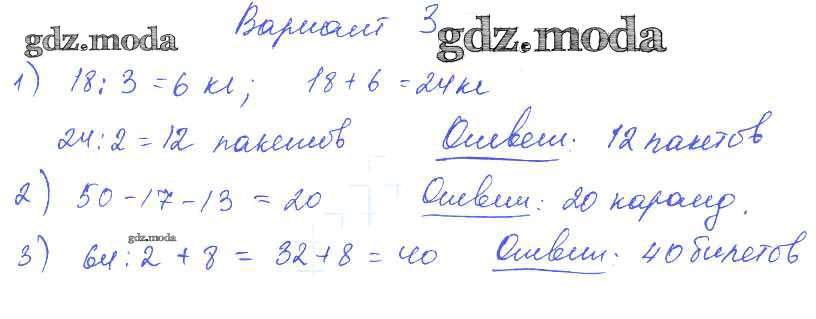 Вариант 3
gdz.moda gdz.moda
1) 18 : 3 = 6 кг; 18 + 6 = 24 кг
24 : 2 = 12 пакетов Ответ: 12 пакетов
2) 50 - 17 - 13 = 20 Ответ: 20 каранд.
gdz.moda
3) 64 : 2 + 8 = 32 + 8 = 40 Ответ: 40 билетов